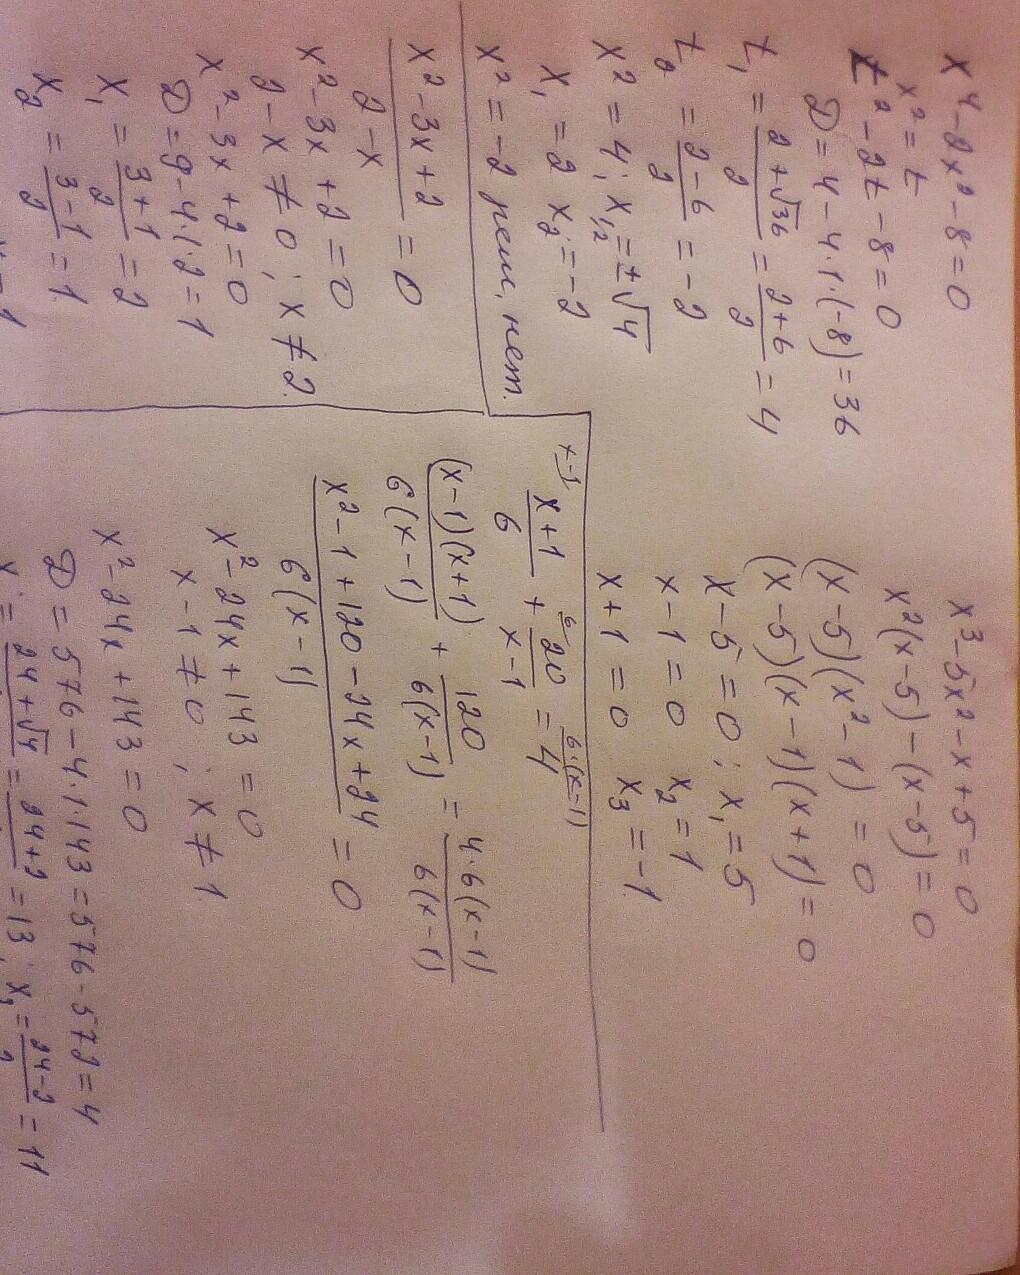 x⁴-2x²-8=0
x²=t
t²-2t-8=0
D=4-4·1·(-8)=36
t₁ = (2+√36)/2 = (2+6)/2 = 4
t₂ = (2-6)/2 = -2
x²=4; x₁,₂=±√4
x₁=2 x₂=-2
x²=-2 реш. нет.
(x²-3x+2)/(2-x) = 0
x²-3x+2=0
2-x≠0; x≠2.
x²-3x+2=0
D=9-4·1·2=1
x₁ = (3+1)/2 = 2
x₂ = (3-1)/2 = 1.
x³-5x²-x+5=0
x²(x-5)-(x-5)=0
(x-5)(x²-1)=0
(x-5)(x-1)(x+1)=0
x-5=0; x₁=5
x-1=0 x₂=1
x+1=0 x₃=-1.
x-1 6 6·(x-1)
(x+1)/6 + 20/(x-1) = 4
(x-1)(x+1)/6(x-1) + 120/6(x-1) = 4·6(x-1)/6(x-1)
(x²-1+120-24x+24)/6(x-1) = 0
x²-24x+143=0
x-1≠0; x≠1.
x²-24x+143=0
D=576-4·1·143=576-572=4
= (24+√4)/ = (24+2)/ = 13; = (24-2)/2 = 11